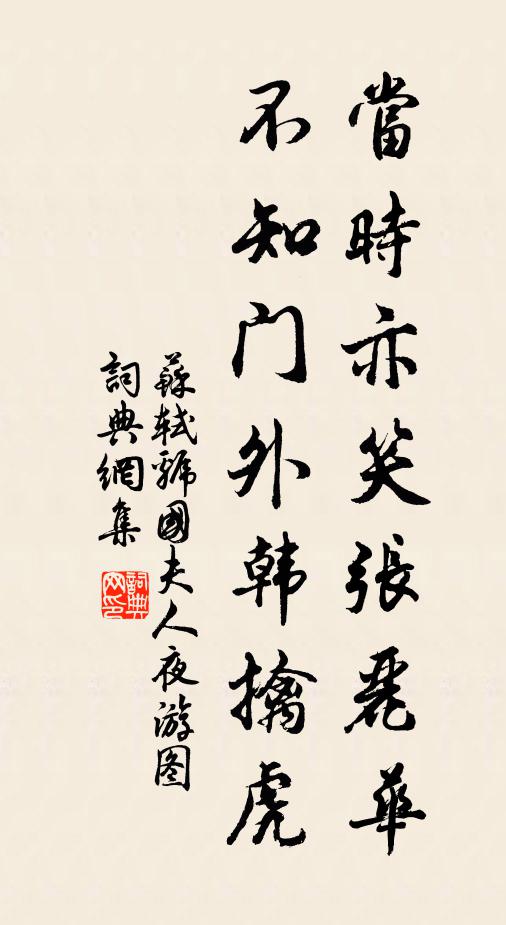 當時亦笑張麗華
不知門外韩擒虎
蘇軾虢國夫人夜游图
詞典網集
詞典网印